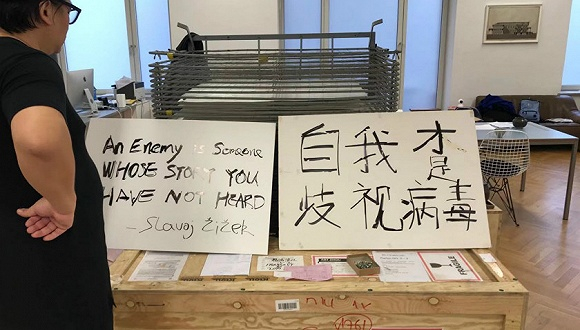 An Enemy is Someone
WHOSE STORY YOU
HAVE NOT HEARD
- Slavoj Žižek
自我才是
歧视病毒
FRAGILE